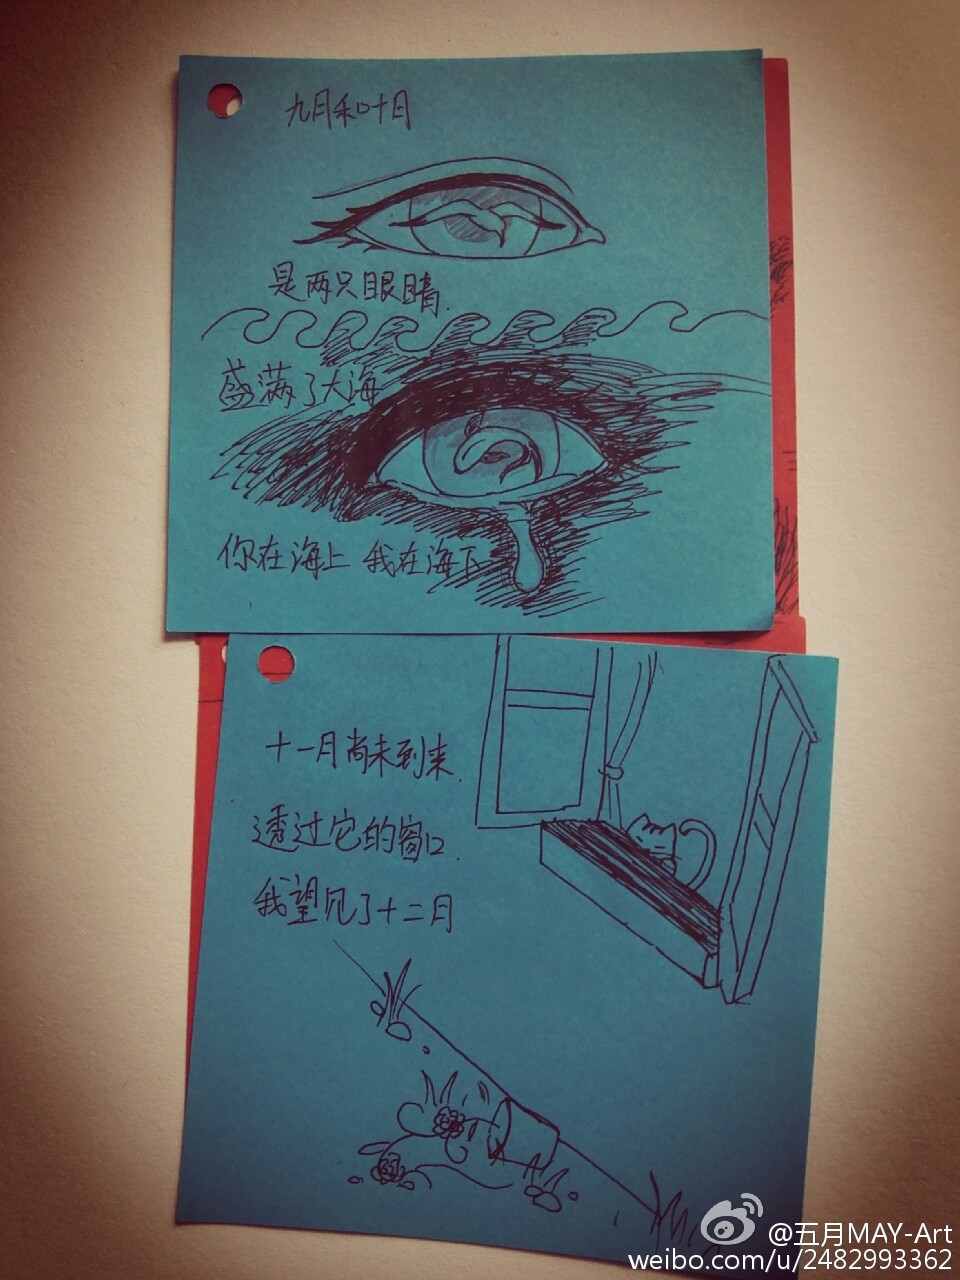 九月和叶月
是两只眼睛.
盛满了大海
你在海上 我在海下
十一月尚未到来.
透过它的窗口.
我望见了十二月
@五月MAY-Art
weibo.com/u/2482993362